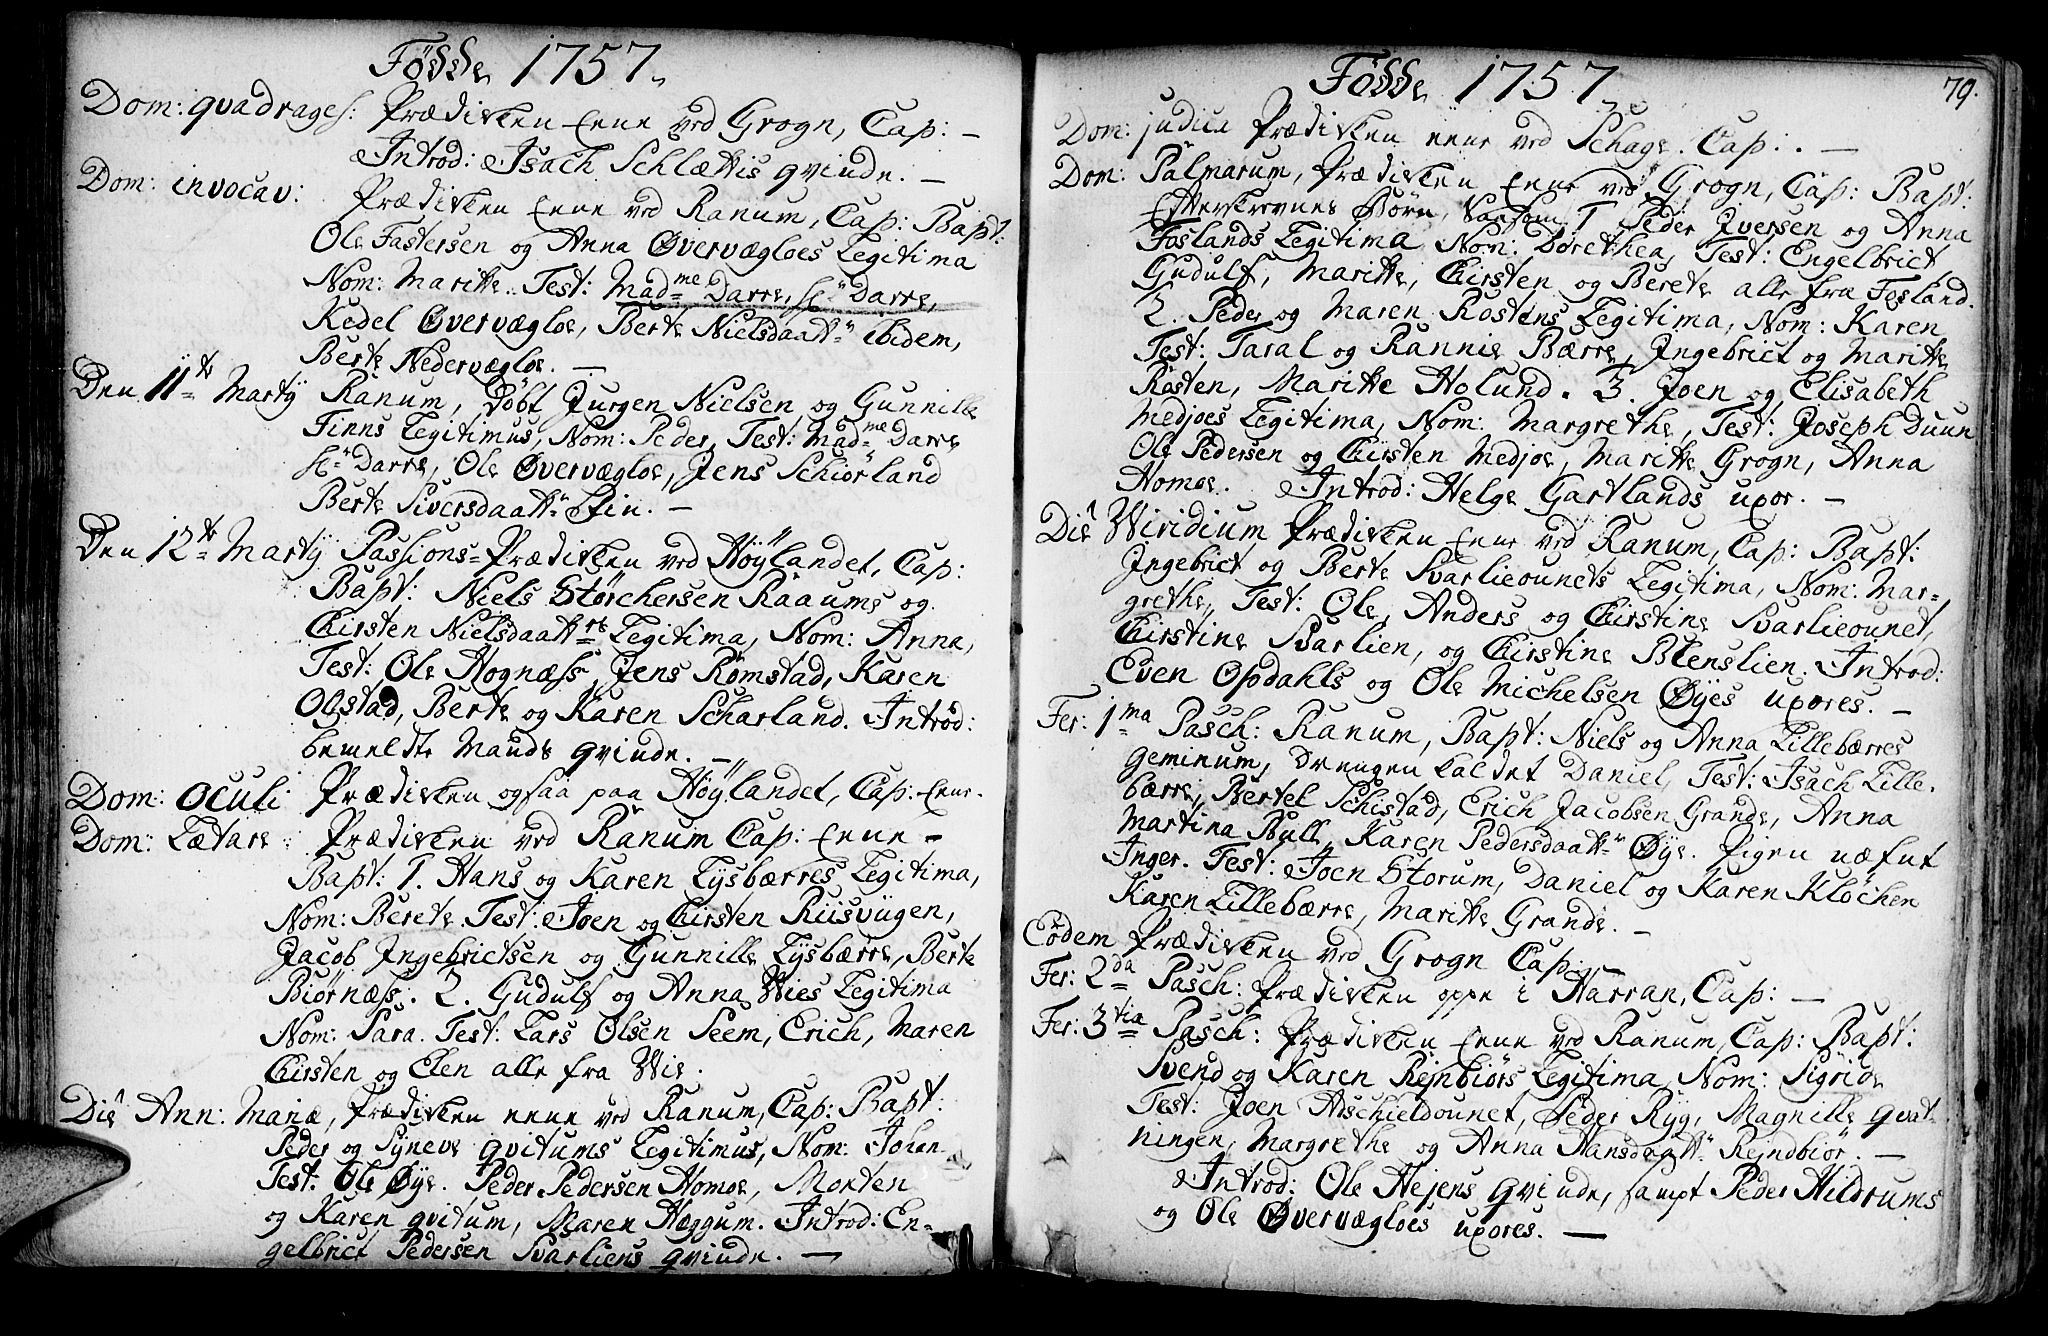 Födde 1757.
Dom: qvadrages: Prædicken Eene ved Grogn, Cap: –
Introd: Isach Schlættis qvinde. –
Dom: invocav: Prædicken Eene ved Ranum, Cap: Bapt:
Ole Fastersen og Anna Øvervægloes Legitima
Nom: Maritte. Test: Madme Darre, Darre,
Kedel Øvervægloe, Berte Nielsdaatt ibidem,
Berte Nedervægloe. –
Den 11te Martÿ Ranum, Döbt Jurgen Nielsen og Gunnille
Finns Legitimus, Nom: Peder, Test: Madme Darre
Darre, Ole Øvervægloe, Jens Schiörland
Berte Siversdaatt Fin. –
Den 12te Martÿ Passions-Prædicken ved Höÿlandet, Cap:
Bapt: Niels Störchersen Raaums og
Chirsten Nielsdaatters Legitima, Nom: Anna,
Test: Ole Hognæss, Jens Römstad, Karen
Olstad, Berte og Karen Scharland. Introd:
bemeldte Mands qvinde. –
Dom: Oculi Prædicken ogsaa paa Höÿlandet, Cap: Eene.
Dom: Lætare: Prædicken ved Ranum Cap: Eene –
Bapt: 1. Hans og Karen Lysbærres Legitima,
Nom: Berete. Test: Joen og Chirsten Riisviigen,
Jacob Ingebrictsen og Gunnille Lysbærre, Berte
Biörnæss. 2. Gudulf og Anna Wies Legitima
Nom: Sara. Test: Lars Olsen Seem, Erich, Maren
Chirsten og Elen alle fra Wie.
Die Ann: Mariæ, Prædicken eene ved Ranum, Cap: Bapt:
Peder og Syneve qvitums Legitimus, Nom: Johan
Test: Ole Øye. Peder Pedersen Homoe, Morten
og Karen qvitum, Maren Hæggum. Introd: En-
gelbrict Pedersen Svarliens qvinde. –
79.
Födde 1757
Dom: judica Prædicken eene ved Schage. Cap: . –
Dom: Palmarum, Prædicken Eene ved Grogn, Cap: Bapt:
Efterskrevnes Börn, Saasom 1 Peder Iversen og Anna
Foslands Legitima Nom: Dorethea, Test: Engelbrict
Gudulf, Maritte, Chirsten og Berete alle fra Fosland.
2. Peder og Maren Rostens Legitima, Nom: Karen
Test: Taral og Rannie Bærre, Ingebrict og Maritte
Rosten, Maritte Holund. 3. Joen og Elisabeth
Medjoes Legitima, Nom: Margrethe, Test: Joseph Duun
Ole Pedersen og Chirsten Medjoe, Maritte Grogn, Anna
Homoe. Introd: Helge Gartlands uxor. –
Die Wiridium Prædicken Eene ved Ranum, Cap: Bapt:
Ingebrict og Berte Svarlieounets Legitima, Nom: Mar-
grethe, Test: Ole, Anders og Chirstine Svarlieounet,
Chirstine Svarlien, og Chirstine Blenslien. Introd:
Even Opdahls og Ole Michelsen Øyes uxores. –
Fer: 1ma Pasch: Ranum, Bapt: Niels og Anna Lillebærres
geminum, Drengen kaldet Daniel, Test: Isach Lille-
bærre, Bertel Schistad, Erich Jacobsen Grande, Anna
Martina Bull, Karen Pedersdaatt Øye. Pigen næfnt
Inger. Test: Joen Storum, Daniel og Karen Klöchen
Karen Lillebærre, Maritte Grande. –
Eodem Prædicken ved Grogn Cap: –
Fer: 2da Pasch: Prædicken oppe i Harran, Cap: –
Fer: 3tia Pasch: Prædicken Eene ved Ranum, Cap: Bapt:
Svend og Karen Rejnbiörs Legitima, Nom: Sigride
Test: Joen Adschieldounet, Peder Ryg, Magnille qvat-
ningen, Margrethe og Anna Hansdaatt Rejndbiör. –
Introd: Ole Hejens qvinde, sampt Peder Hildrums
og Ole Øvervægloes uxores. –